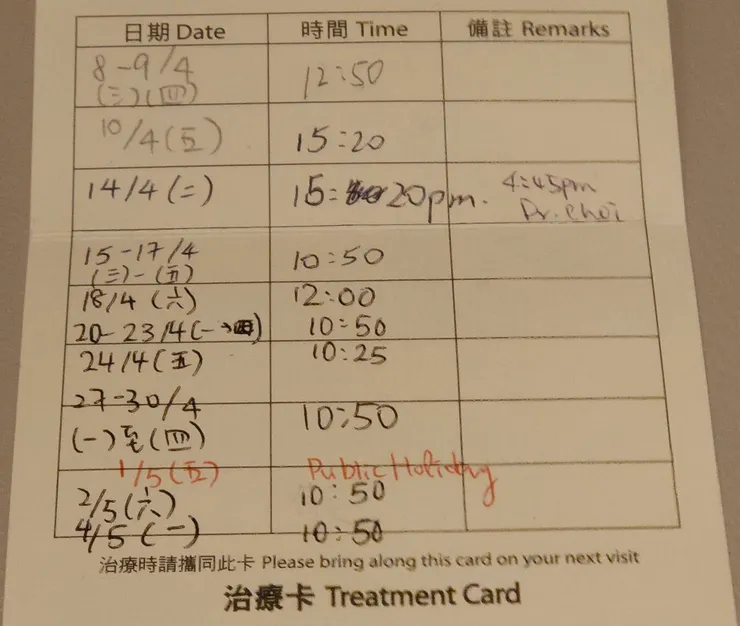 日期 Date 時間 Time 備註 Remarks
8-9/4 12:50
(三)(四)
10/4(五) 15:20
14/4(二) 15:20pm. 4:45pm
Dr. Choi
15-17/4 10:50
(三)-(五)
18/4 (六) 12:00
20-23/4(一→四) 10:50
24/4(五) 10:25
27-30/4 10:50
(一)至(四)
1/5(五) Public Holiday
2/5(六) 10:50
4/5 (一) 10:50
治療時請攜同此卡 Please bring along this card on your next visit
治療卡 Treatment Card